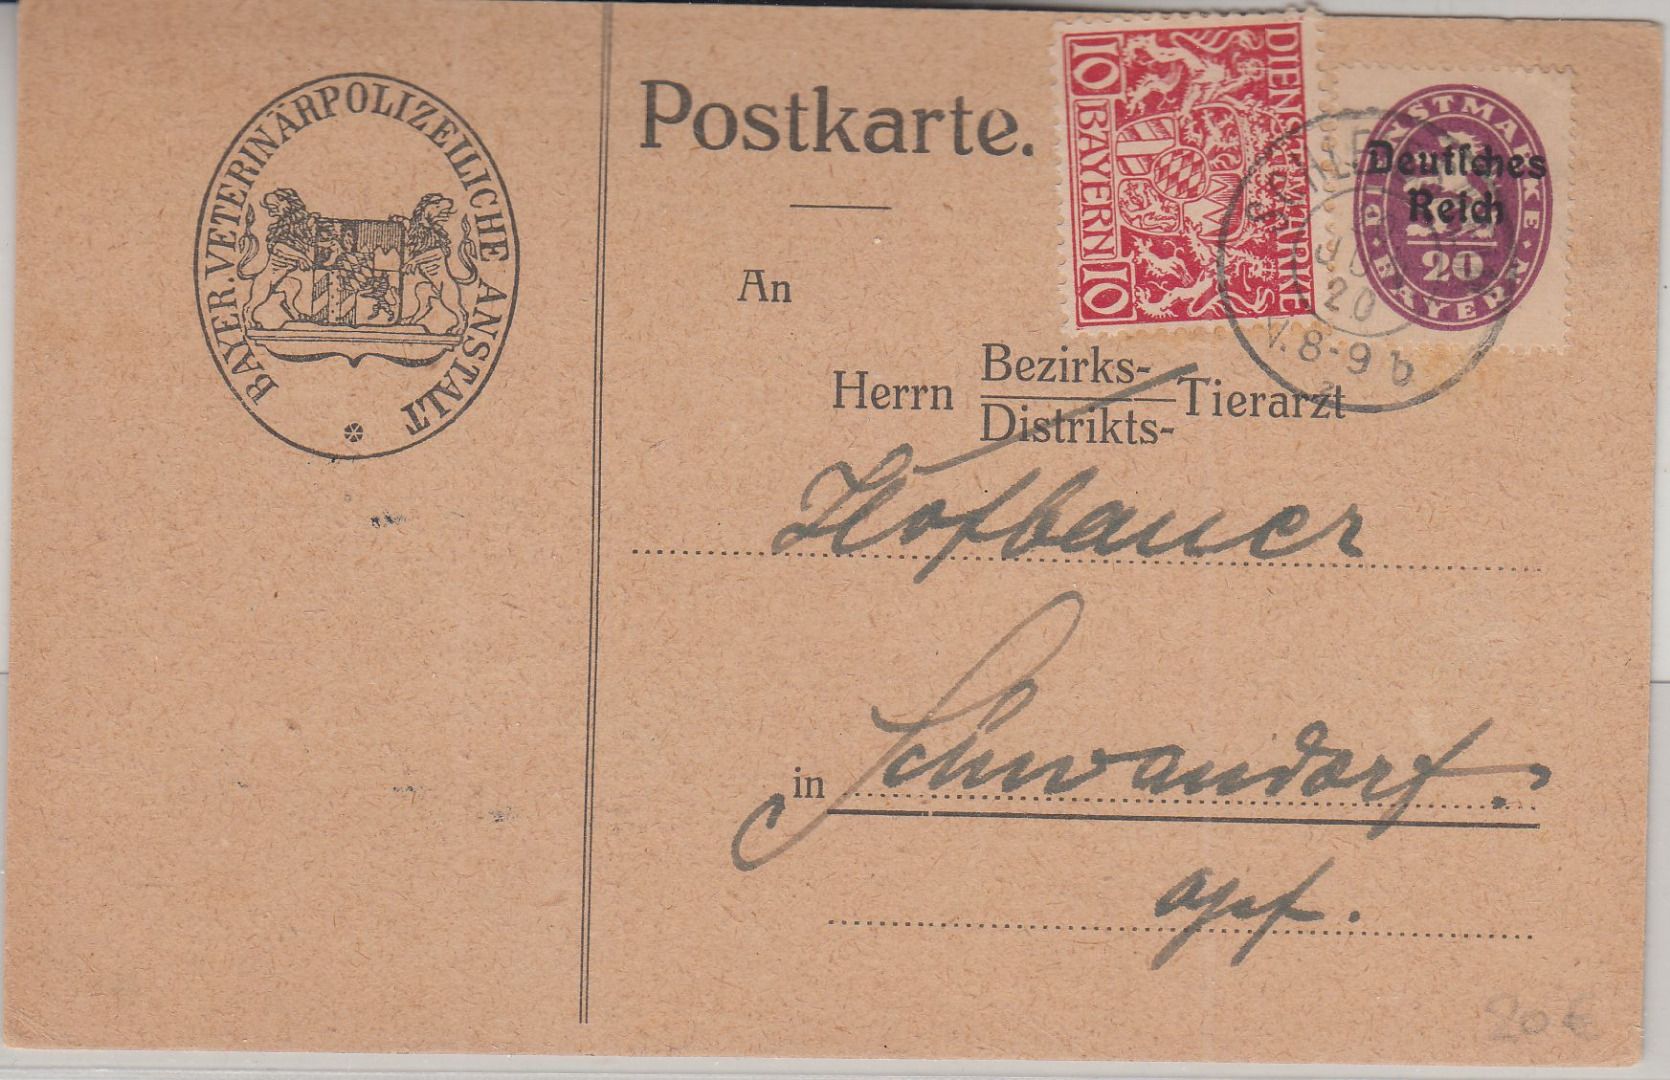 BAYER. VETERINÄRPOLIZEILICHE ANSTALT
Postkarte.
10 BAYERN 10
DIENSTMARKE
DIENSTMARKE
BAYERN
20
Deutsches
Reich
20
V. 8-9 b
An
Herrn Bezirks-
Distrikts- Tierarzt
Hofbauer
in Schwandorf.
Opf.
20 €